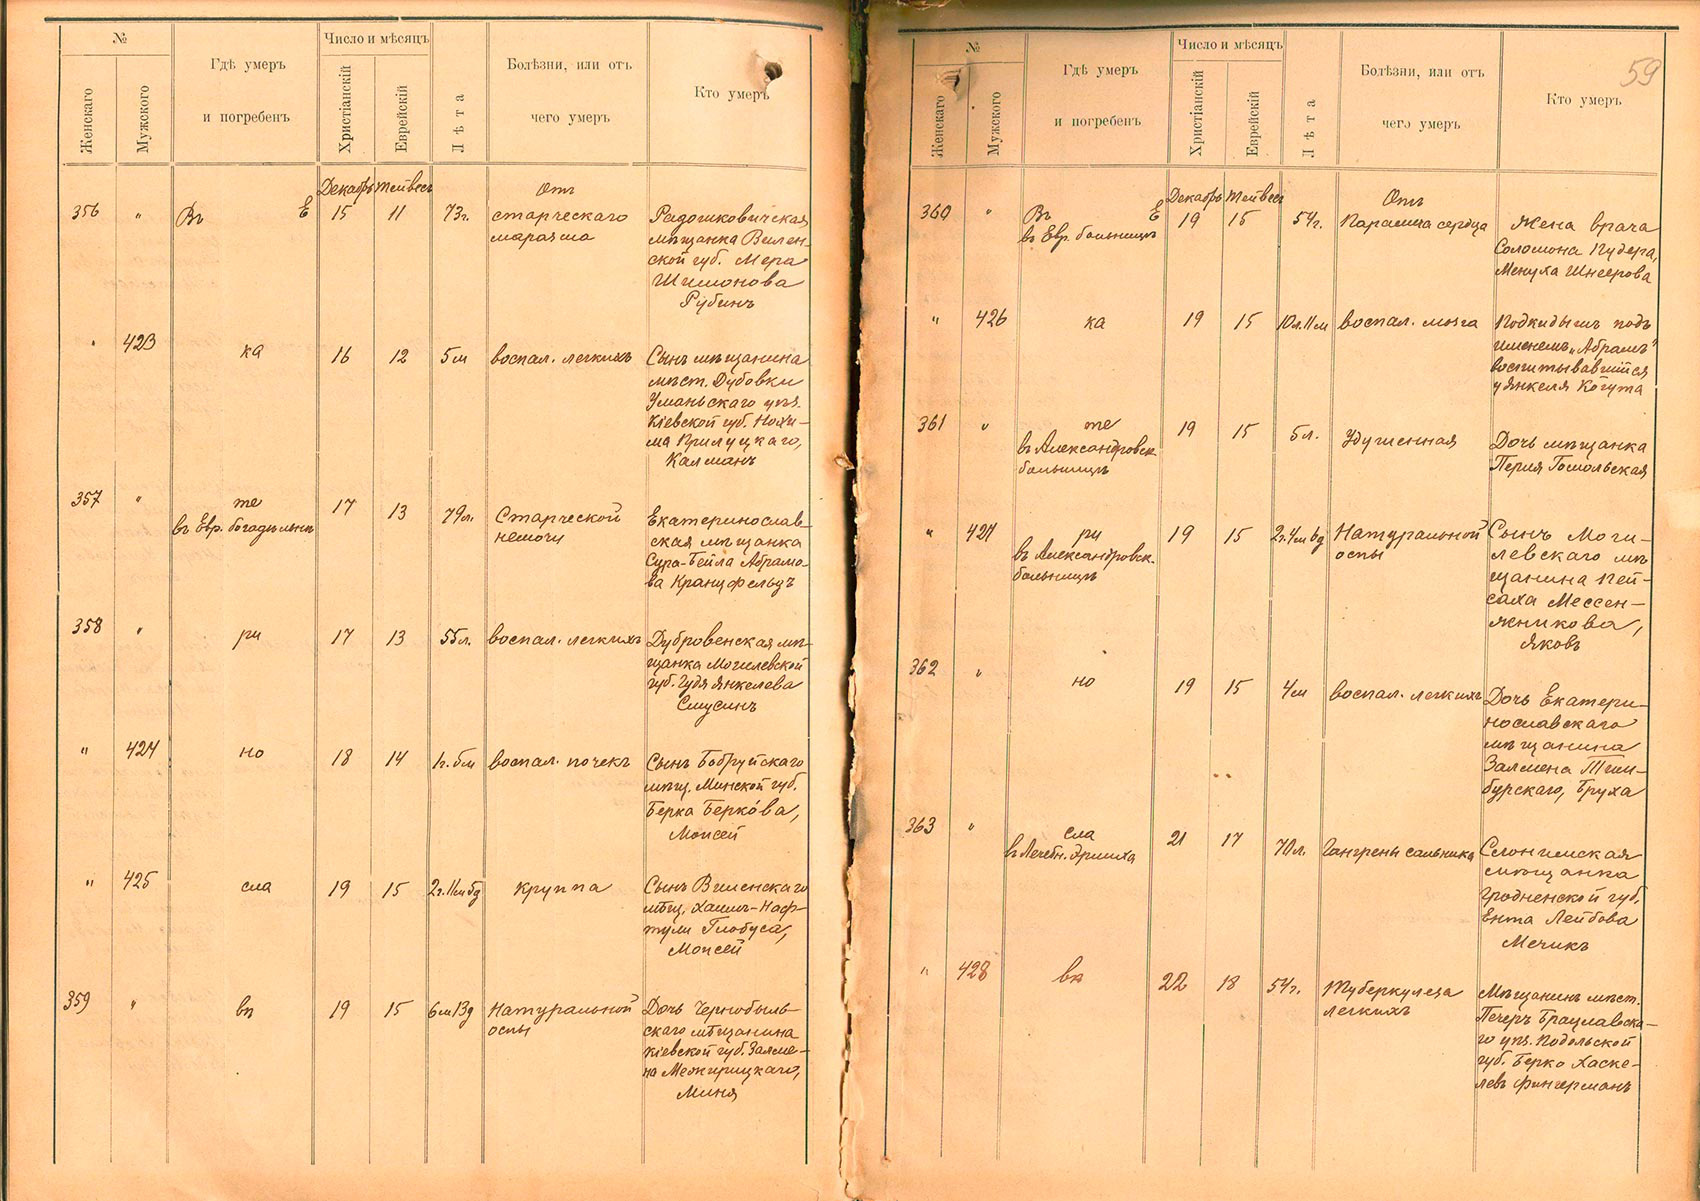 №
Женскаго
Мужского
Гдѣ умеръ
и погребенъ
Число и мѣсяцъ
Христіанскій
Еврейскій
Лѣта
Болѣзни, или отъ
чего умеръ
Кто умеръ
Декабрь Тейвесъ
Отъ
356 " Въ Е 15 11 73г. старческаго
маразма
Радошковичская
мѣщанка Вилен-
ской губ. Мера
Шимонова
Рубинъ
" 423 ка 16 12 5м воспал. легкихъ
Сынъ мѣщанина
мѣст. Дубовки
Уманьскаго уѣз.
Кіевской губ. Нохи-
ма Прилуцкаго,
Калманъ
357 " те 17 13 79л. Старческой
въ Евр. богадѣльнѣ
немочи
Екатеринослав-
ская мѣщанка
Сура-Бейла Абрамо-
ва Кранцфельдъ
358 " ри 17 13 55л. воспал. легкихъ
Дубровенская мѣ-
щанка Могилевской
губ. Гудя Янкелева
Смусинъ
" 424 но 18 14 1г. 5м воспал. почекъ
Сынъ Бобруйскаго
мѣщ. Минской губ.
Берка Беркова,
Моисей
" 425 сла 19 15 2г. 11м 5д круппа
Сынъ Виленскаго
мѣщ. Хаимъ-Наф-
тули Глобуса,
Моисей
359 " вп 19 15 6м 13д Натуральной
оспы
Дочь Чернобыль-
скаго мѣщанина
Кіевской губ. Залме-
на Межирицкаго,
Миня
59
№
Женскаго
Мужского
Гдѣ умеръ
и погребенъ
Число и мѣсяцъ
Христіанскій
Еврейскій
Лѣта
Болѣзни, или отъ
чего умеръ
Кто умеръ
Декабрь Тейвесъ
Отъ
360 " Въ Е 19 15 54г. Паралича сердца
въ Евр. больницѣ
Жена врача
Соломона Кудера,
Менуха Шнеерова
" 426 ка 19 15 10л. 11м воспал. мозга
Подкидышъ подъ
именемъ „Абрамъ"
воспитывавшійся
у Янкеля Когута
361 " те 19 15 5л. Удушенная
въ Александровск.
больницѣ
Дочь мѣщанка
Перля Гомольская
" 427 ри 19 15 2г. 4м 6д Натуральной
въ Александровск.
больницѣ
оспы
Сынъ Моги-
левскаго мѣ-
щанина Пей-
саха Мессен-
жникова,
Яковъ
362 " но 19 15 4м воспал. легкихъ
Дочь Екатери-
нославскаго
мѣщанина
Залмена Тим-
бурскаго, Бруха
363 " сла 21 17 70л. Гангрены сальника
въ Лечебн.
Слонимская
мѣщанка
Гродненской губ.
Ента Лейбова
Мечикъ
" 428 вп 22 18 54г. Туберкулеза
легкихъ
Мѣщанинъ мѣст.
Печеръ Брацлавска-
го уѣз. Подольской
губ. Берко Хаске-
левъ Фингерманъ